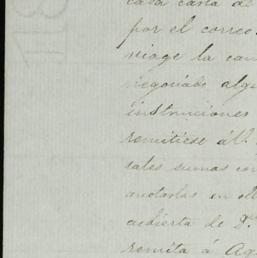 cada carta de
por el correo
viage la can
negociado algu
instrucciones
remitiese á ll.
tales sumas en
anotarlas en
cubierta de D.
remita á Ag